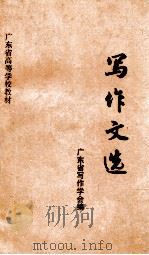 广东省高等学校教材
写作文选
广东省写作学会编
www.toopoo.com